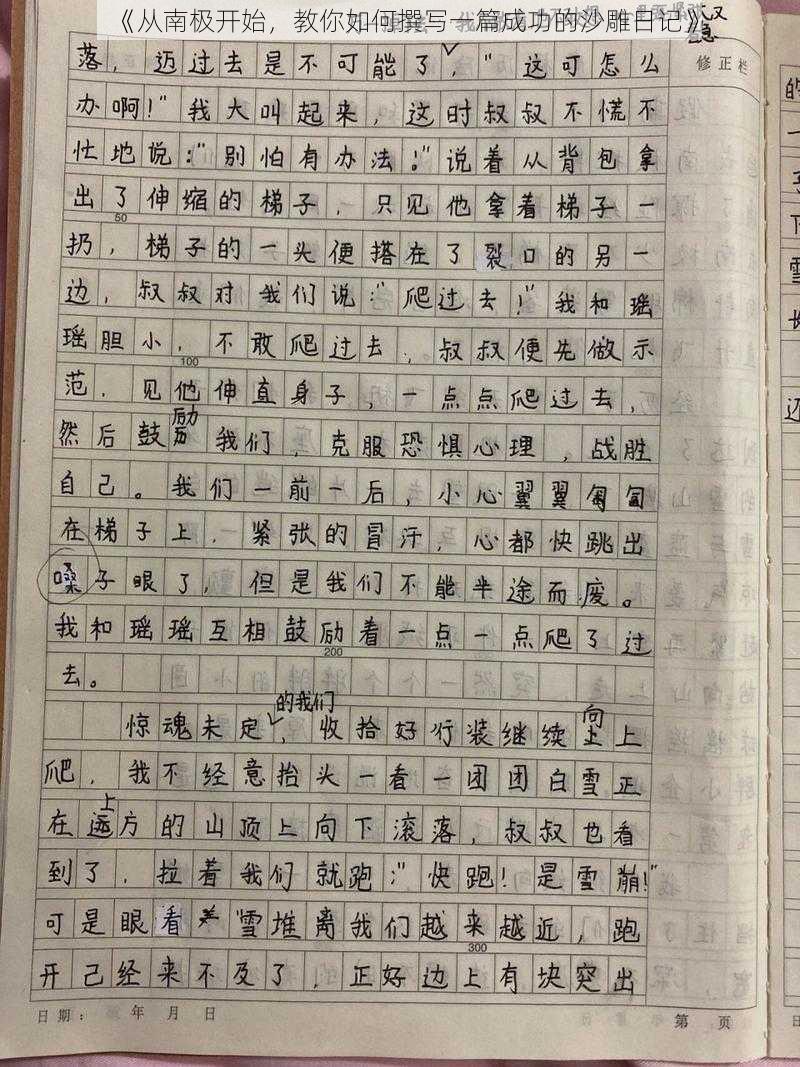 《从南极开始，教你如何撰写一篇成功的沙雕日记》
修正栏
落，迈过去是不可能了，"这可怎么
办啊！"我大叫起来，这时叔叔不慌不
忙地说："别怕有办法！"说着从背包拿
出了伸缩的梯子，只见他拿着梯子一
50
扔，梯子的一头便搭在了裂口的另一
边，叔叔对我们说："爬过去！"我和瑶
瑶胆小，不敢爬过去，叔叔便先做示
100
范，见他伸直身子，一点点爬过去，
然后鼓励我们，克服恐惧心理，战胜
自己。我们一前一后，小心翼翼匍匐
在梯子上，紧张的冒汗，心都快跳出
嗓子眼了，但是我们不能半途而废。
我和瑶瑶互相鼓励着一点一点爬了过
200
去。
的我们
惊魂未定，收拾好行装继续向上
爬，我不经意抬头一看一团团白雪正
上
在远方的山顶上向下滚落，叔叔也看
到了，拉着我们就跑："快跑！是雪崩！"
可是眼看着雪堆离我们越来越近，跑
300
开己经来不及了，正好边上有块突出
日期： 年 月 日
第 页